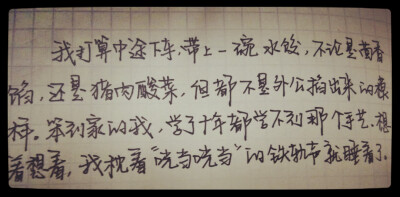 我打算中途下车,带上一碗水饺,不论是茴香
馅,还是猪肉酸菜,但都不是外公掐出来的褶
样。笨到家的我,学了十年都学不到那个手艺.想
着想着,我枕着“咣当咣当”的铁轨声就睡着了.